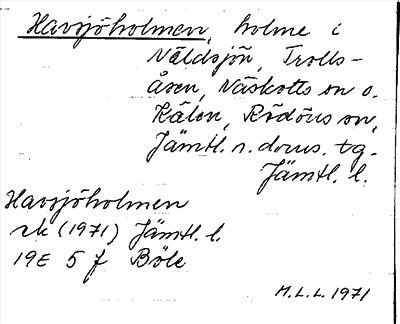 Havsjöholmen, holme i
Näldsjön, Trolls-
åsen, Näskotts sn o.
Kälen, Rödöns sn,
Jämtl. n. doms. tg.
Jämtl. l.
Havsjöholmen
rk (1971) Jämtl. l.
19E 5 f Böle
M.L.L. 1971